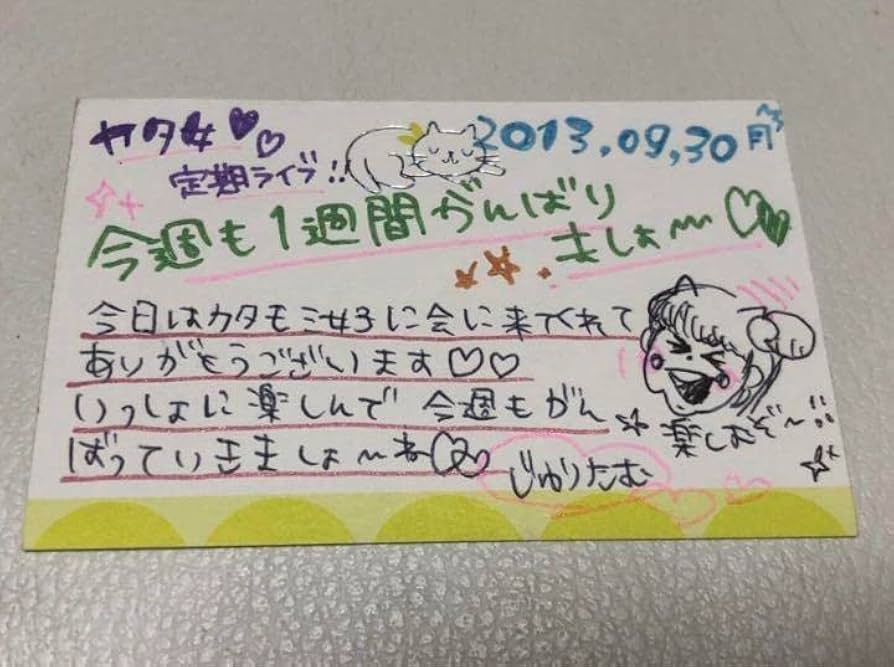 カタ女♥♡
2013.09.30 月
定期ライブ!!
今週も1週間がんばり
ましょ〜♡♥
今日はカタモミ女子に会に来てくれて
ありがとうございます♡♡
いっしょに楽しんで 今週もがん
ばっていきましょ〜ね♡
楽しむぞ〜!!
じゅりたむ